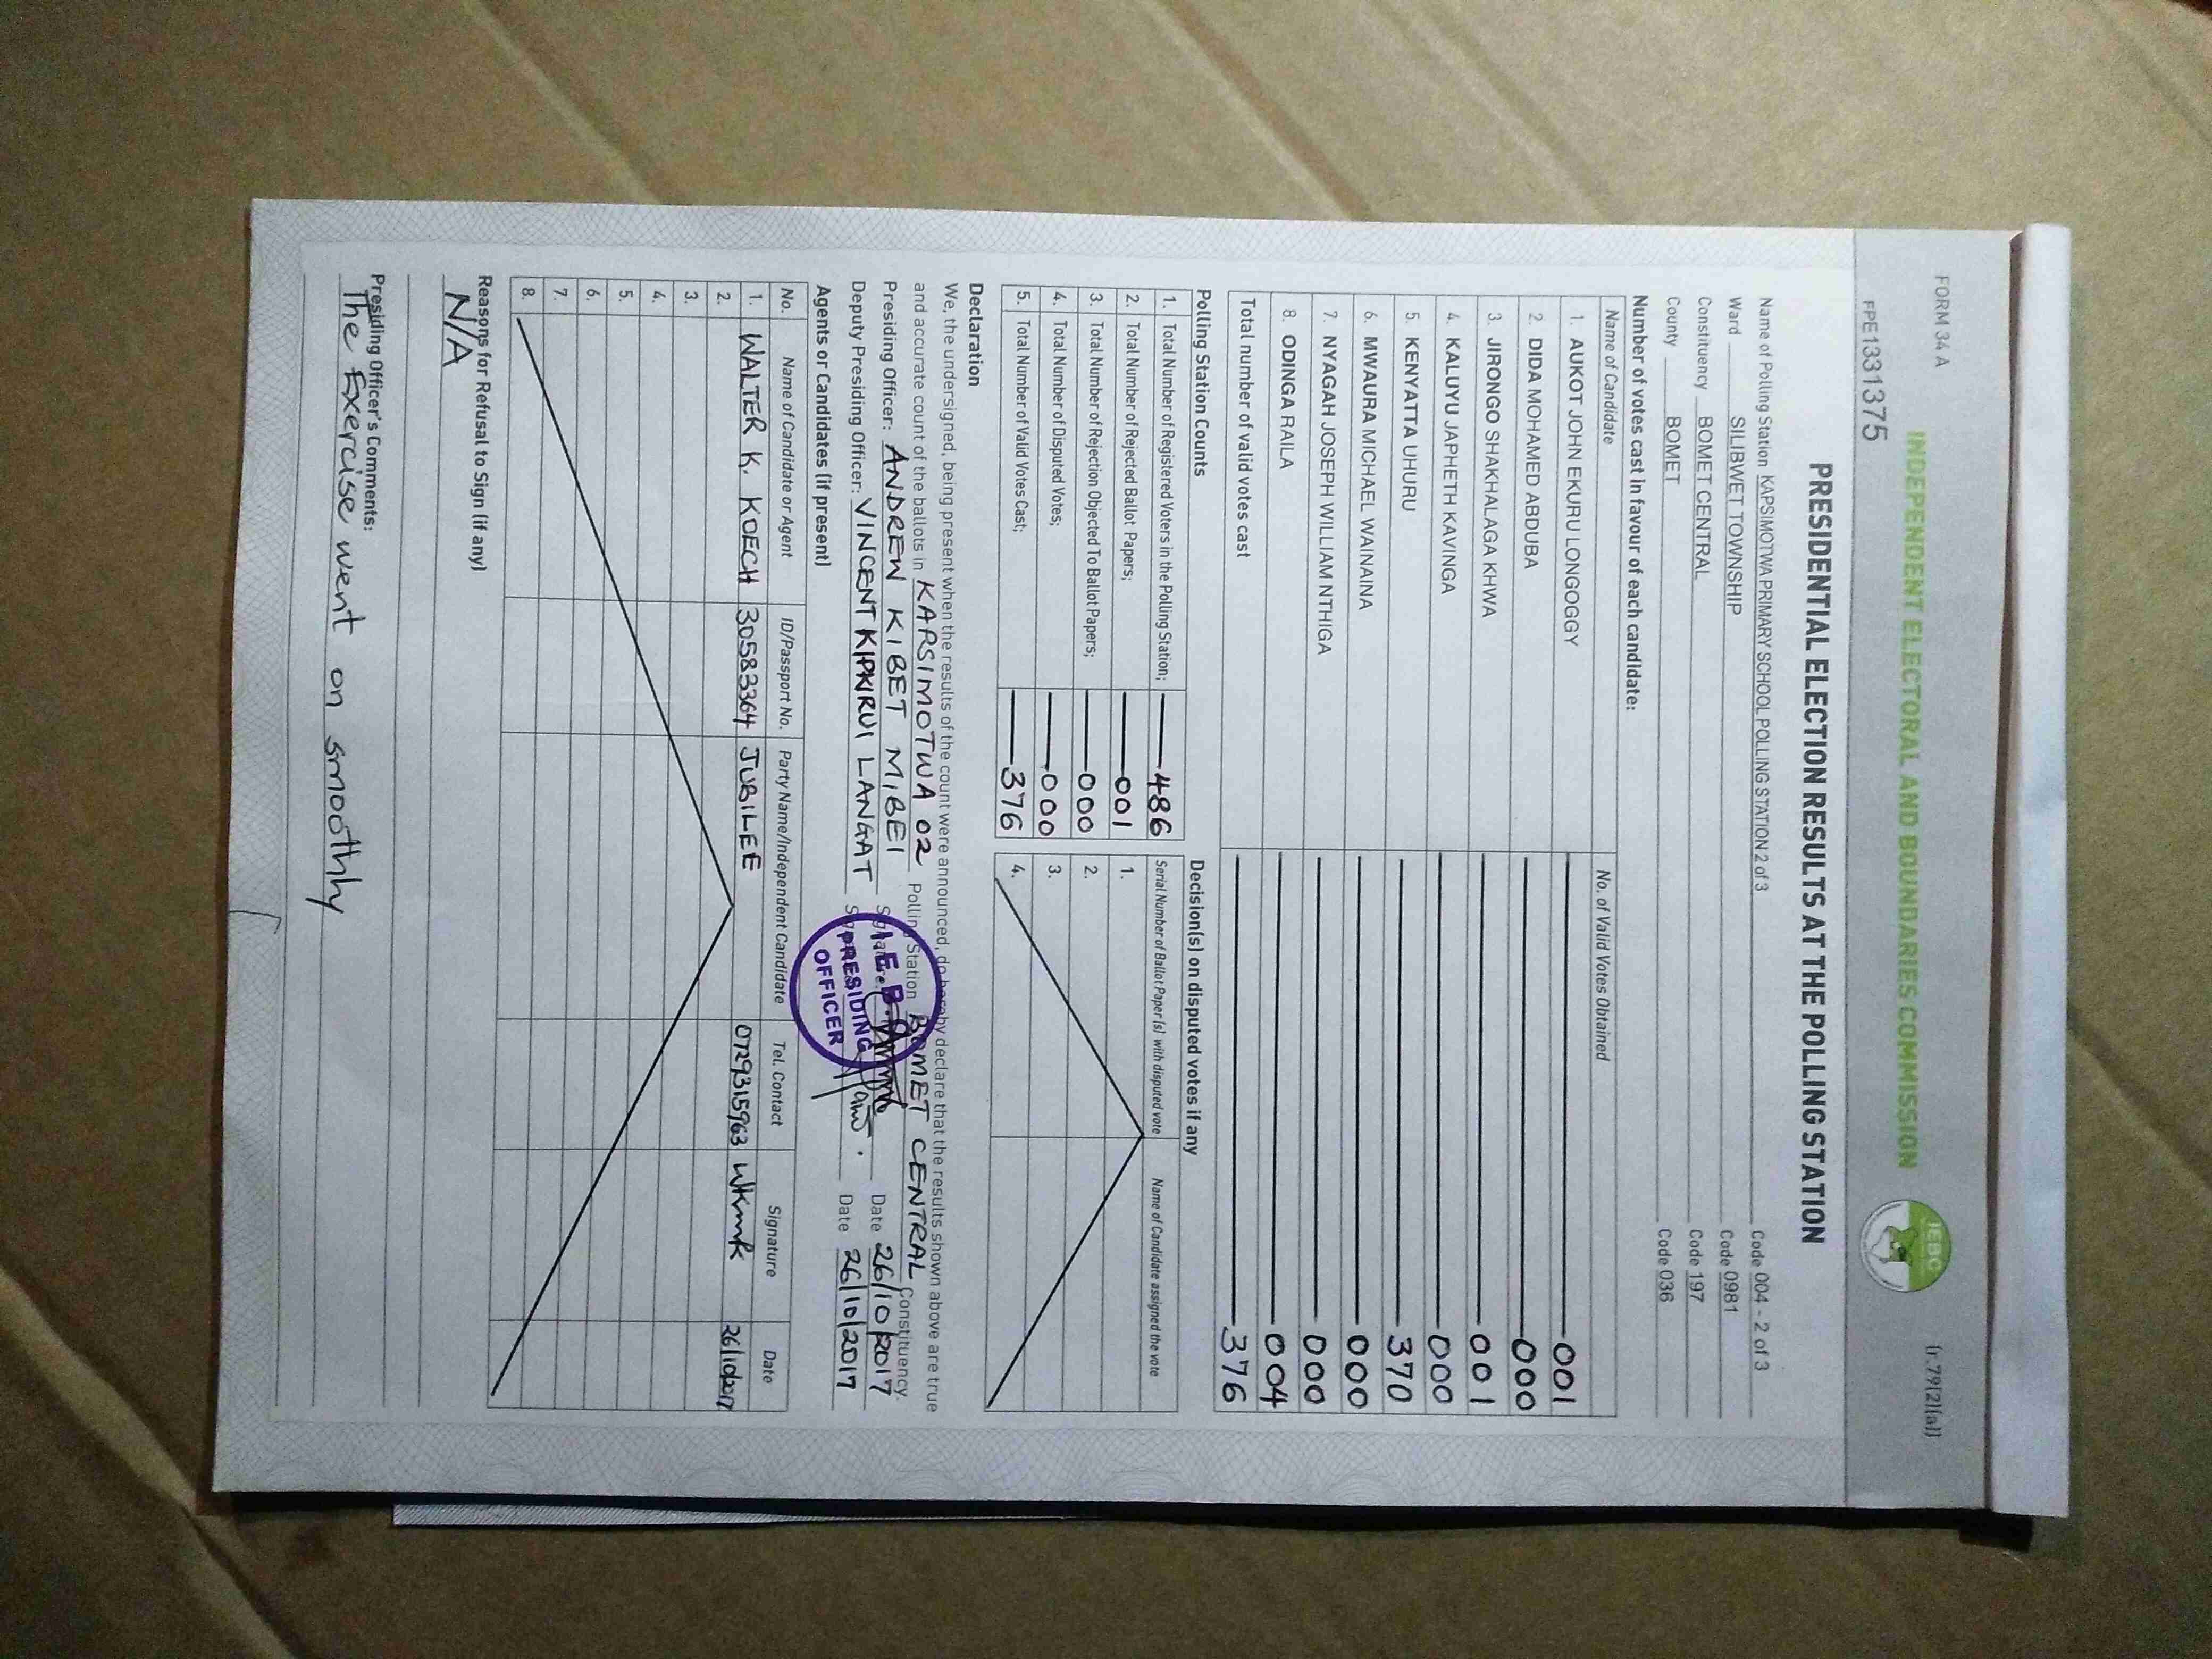 FORM 34 A
(r.79(2)(a))
INDEPENDENT ELECTORAL AND BOUNDARIES COMMISSION
IEBC
FPE1331375
PRESIDENTIAL ELECTION RESULTS AT THE POLLING STATION
Name of Polling Station KAPSIMOTWA PRIMARY SCHOOL POLLING STATION 2 of 3 Code 004 - 2 of 3
Ward SILIBWET TOWNSHIP Code 0981
Constituency BOMET CENTRAL Code 197
County BOMET Code 036
Number of votes cast in favour of each candidate:
Name of Candidate No. of Valid Votes Obtained
1. AUKOT JOHN EKURU LONGOGGY 001
2. DIDA MOHAMED ABDUBA 000
3. JIRONGO SHAKHALAGA KHWA 001
4. KALUYU JAPHETH KAVINGA 000
5. KENYATTA UHURU 370
6. MWAURA MICHAEL WAINAINA 000
7. NYAGAH JOSEPH WILLIAM NTHIGA 000
8. ODINGA RAILA 004
Total number of valid votes cast 376
Polling Station Counts
1. Total Number of Registered Voters in the Polling Station; 486
2. Total Number of Rejected Ballot Papers; 001
3. Total Number of Rejection Objected To Ballot Papers; 000
4. Total Number of Disputed Votes; 000
5. Total Number of Valid Votes Cast; 376
Decision(s) on disputed votes if any
Serial Number of Ballot Paper (s) with disputed vote Name of Candidate assigned the vote
1.
2.
3.
4.
Declaration
We, the undersigned, being present when the results of the count were announced, do hereby declare that the results shown above are true
and accurate count of the ballots in KAPSIMOTWA 02 Polling Station BOMET CENTRAL Constituency.
Presiding Officer: ANDREW KIBET MIBEI Signature: Date 26/10/2017
Deputy Presiding Officer: VINCENT KIPKIRUI LANGAT Date 26/10/2017
I.E.B.C
PRESIDING
OFFICER
Agents or Candidates (if present)
No. Name of Candidate or Agent ID/Passport No. Party Name/Independent Candidate Tel. Contact Signature Date
1. WALTER K. KOECH 30583364 JUBILEE 0729315963 26/10/2017
2.
3.
4.
5.
6.
7.
8.
Reasons for Refusal to Sign (if any)
N/A
Presiding Officer's Comments:
The Exercise went on smoothly